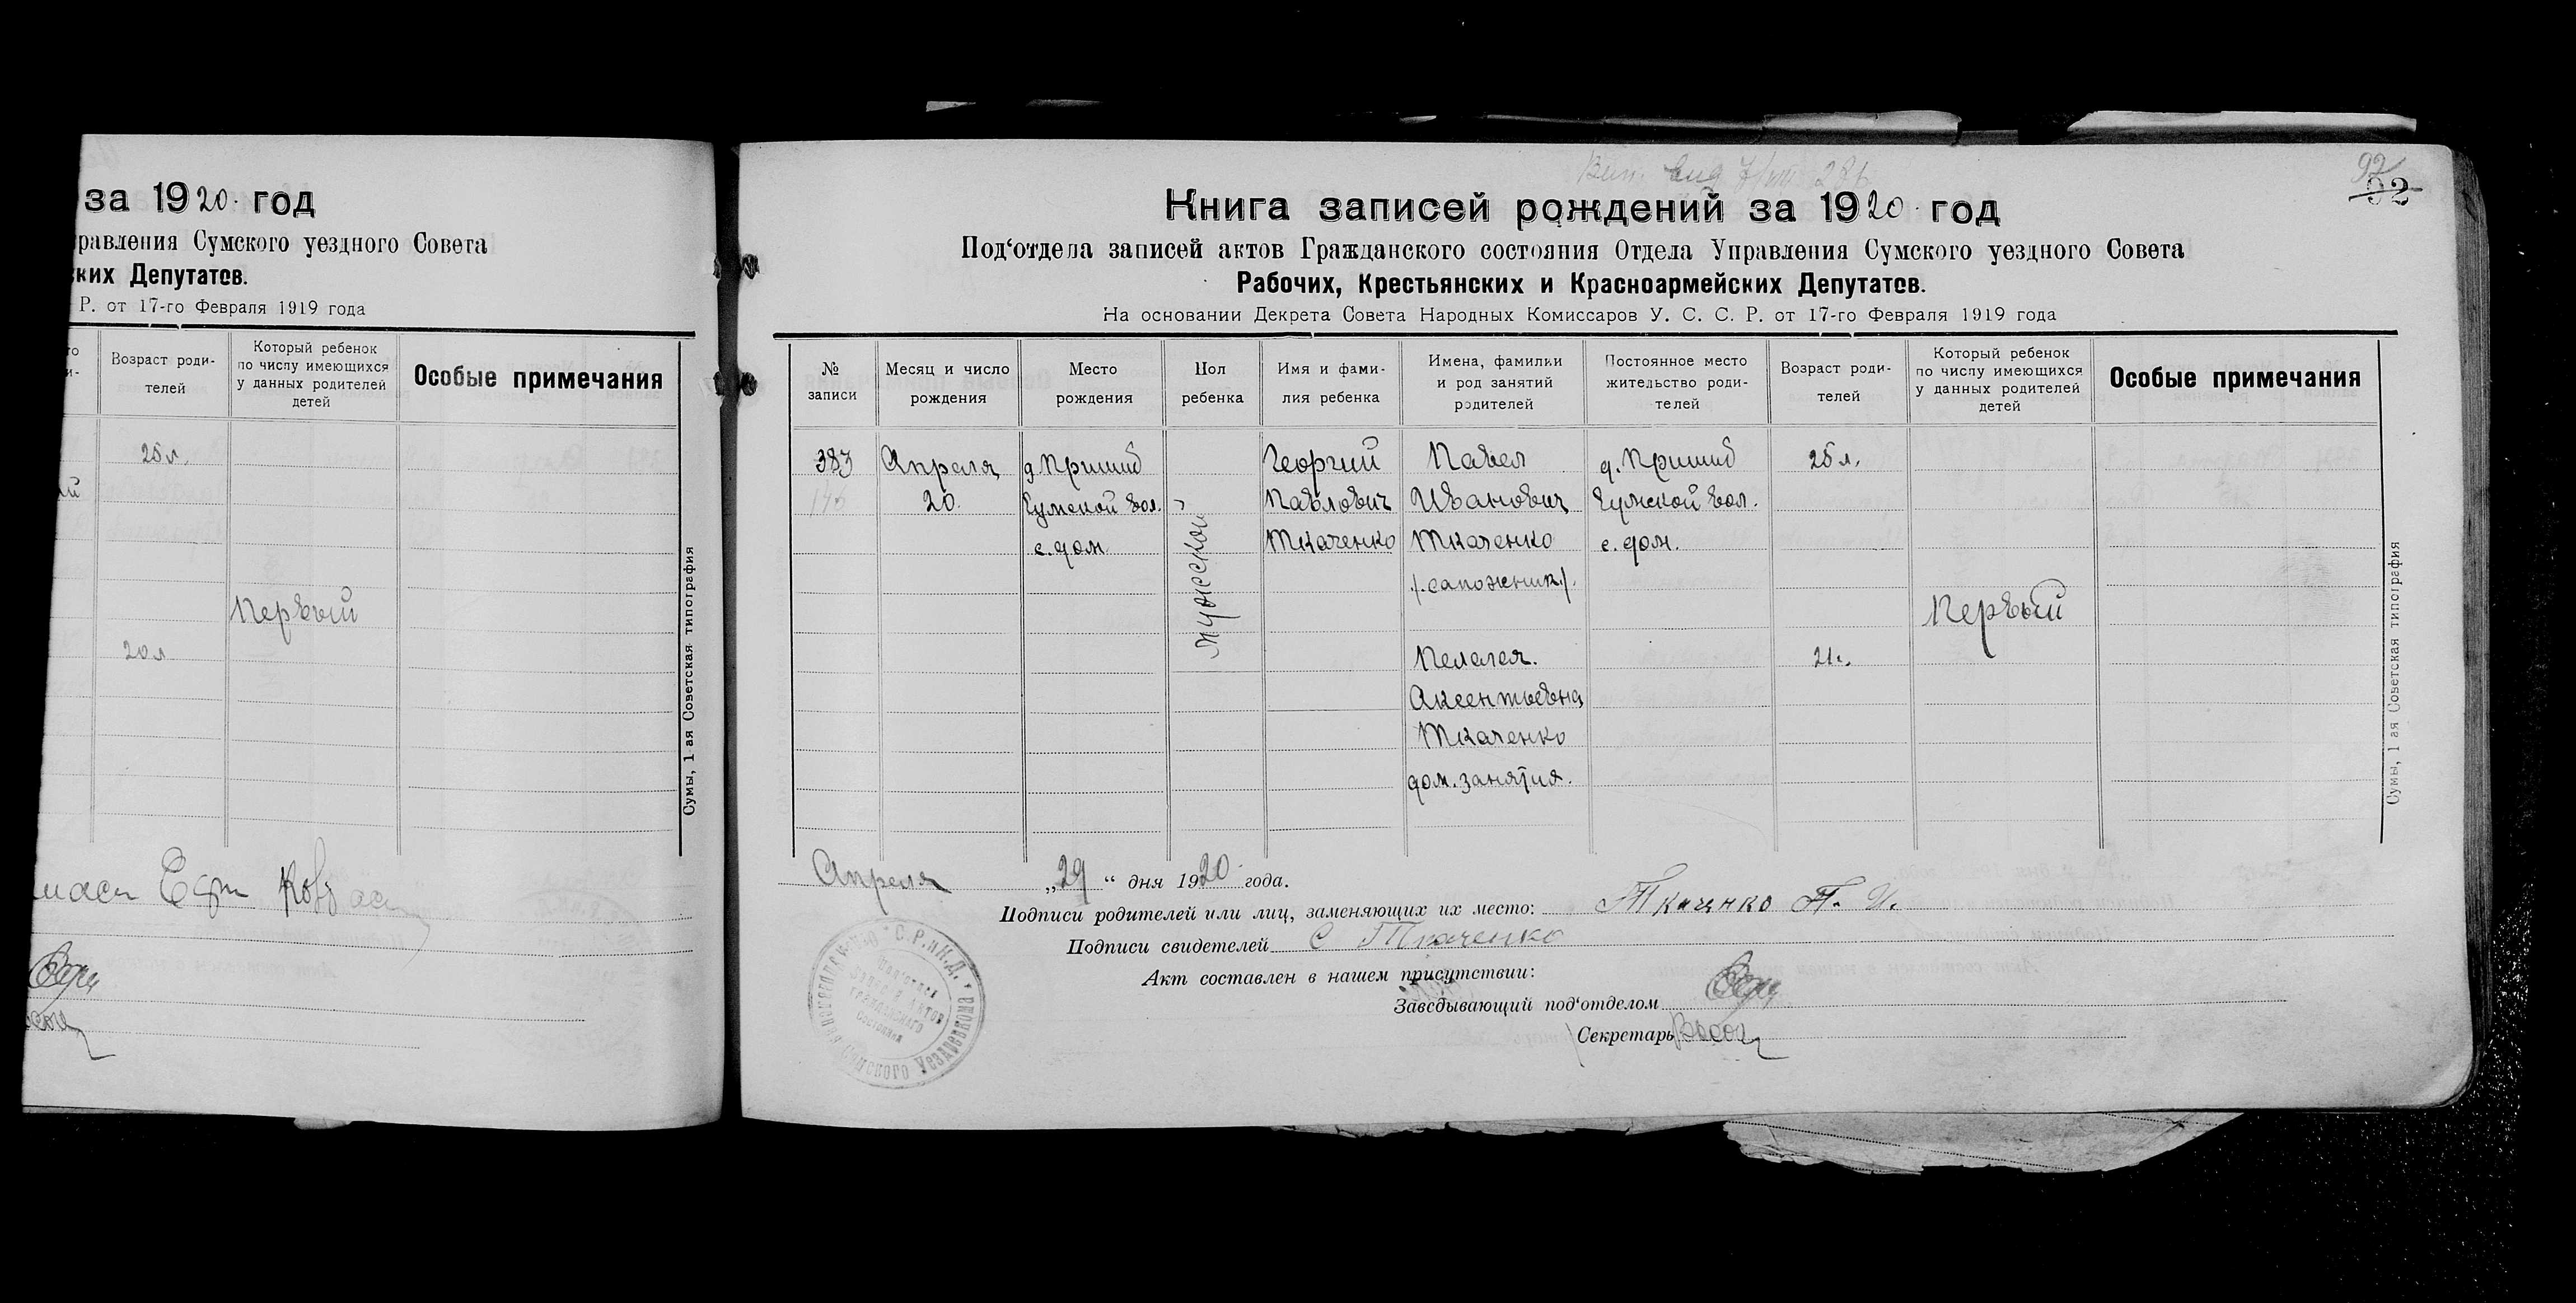 за 1920 год
равления Сумского уездного Совета
ских Депутатов.
Р. от 17-го Февраля 1919 года
Возраст роди-
телей
Который ребенок
по числу имеющихся
у данных родителей
детей
Особые примечания
25 л.
Первый
20 л
Сумы, 1-ая Советская типография
92
92
Книга записей рождений за 1920 год
Под‘отдела записей актов Гражданского состояния Отдела Управления Сумского уездного Совета
Рабочих, Крестьянских и Красноармейских Депутатов.
На основании Декрета Совета Народных Комиссаров У. С. С. Р. от 17-го Февраля 1919 года
№
записи
Месяц и число
рождения
Место
рождения
Пол
ребенка
Имя и фами-
лия ребенка
Имена, фамилии
и род занятий
родителей
Постоянное место
жительство роди-
телей
Возраст роди-
телей
Который ребенок
по числу имеющихся
у данных родителей
детей
Особые примечания
383
Апреля
20.
Сумской вол.
с. дом.
мужеской
Георгий
Павлович
Ткаченко
Павел
Иванович
Ткаченко
/.сапожник./.
Пелагея.
Аксентьевна
Ткаченко
дом. занятия.
Сумской вол.
с. дом.
25 л.
21 л.
Первый
Сумы, 1-ая Советская типография
Апреля „29“ дня 1920 года.
Подписи родителей или лиц, заменяющих их место: Ткаченко П. И.
Подписи свидетелей С Ткаченко
Акт составлен в нашем присутствии:
Заведывающий под‘отделом
Секретарь